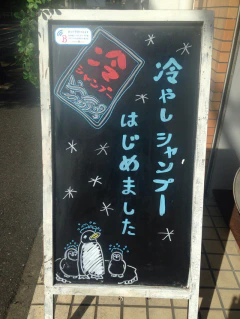 冷やしシャンプー
はじめました
冷
シャンプー